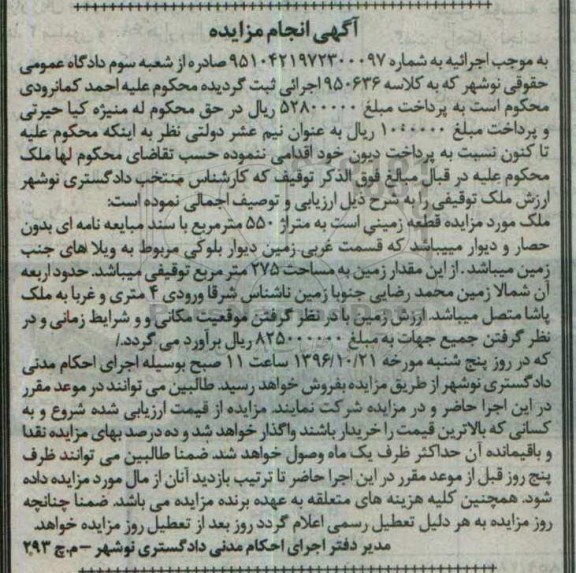 آگهی انجام مزایده
به موجب اجرائیه به شماره ۹۵۱۰۴۲۱۹۷۲۳۰۰۰۹۷ صادره از شعبه سوم دادگاه عمومی
حقوقی نوشهر که به کلاسه ۹۵۰۶۳۶ اجرائی ثبت گردیده محکوم علیه احمد کمانرودی
محکوم است به پرداخت مبلغ ۵۲۸۰۰۰۰۰ ریال در حق محکوم له منیژه کیا حیرتی
و پرداخت مبلغ ۱۰۰۰۰۰۰ ریال به عنوان نیم عشر دولتی نظر به اینکه محکوم علیه
تا کنون نسبت به پرداخت دیون خود اقدامی ننموده حسب تقاضای محکوم لها ملک
محکوم علیه در قبال مبالغ فوق الذکر توقیف که کارشناس منتخب دادگستری نوشهر
ارزش ملک توقیفی را به شرح ذیل ارزیابی و توصیف اجمالی نموده است:
ملک مورد مزایده قطعه زمینی است به متراژ ۵۵۰ مترمربع با سند مبایعه نامه ای بدون
حصار و دیوار میباشد که قسمت غربی زمین دیوار بلوکی مربوط به ویلا های جنب
زمین میباشد . از این مقدار زمین به مساحت ۲۷۵ متر مربع توقیفی میباشد. حدود اربعه
آن شمالا زمین محمد رضایی جنوبا زمین ناشناس شرقا ورودی ۴ متری و غربا به ملک
پاشا متصل میباشد. ارزش زمین با در نظر گرفتن موقعیت مکانی و و شرایط زمانی و در
نظر گرفتن جمیع جهات به مبلغ ۸۲۵۰۰۰۰۰۰ ریال برآورد می گردد./
که در روز پنج شنبه مورخه ۱۳۹۶/۱۰/۲۱ ساعت ۱۱ صبح بوسیله اجرای احکام مدنی
دادگستری نوشهر از طریق مزایده بفروش خواهد رسید. طالبین می توانند در موعد مقرر
در این اجرا حاضر و در مزایده شرکت نمایند. مزایده از قیمت ارزیابی شده شروع و به
کسانی که بالاترین قیمت را خریدار باشند واگذار خواهد شد و ده درصد بهای مزایده نقدا
و باقیمانده آن حداکثر ظرف یک ماه وصول خواهد شد. ضمنا طالبین می توانند ظرف
پنج روز قبل از موعد مقرر در این اجرا حاضر تا ترتیب بازدید آنان از مال مورد مزایده داده
شود. همچنین کلیه هزینه های متعلقه به عهده برنده مزایده می باشد. ضمنا چنانچه
روز مزایده به هر دلیل تعطیل رسمی اعلام گردد روز بعد از تعطیل روز مزایده خواهد.
مدیر دفتر اجرای احکام مدنی دادگستری نوشهر – م.چ ۲۹۳